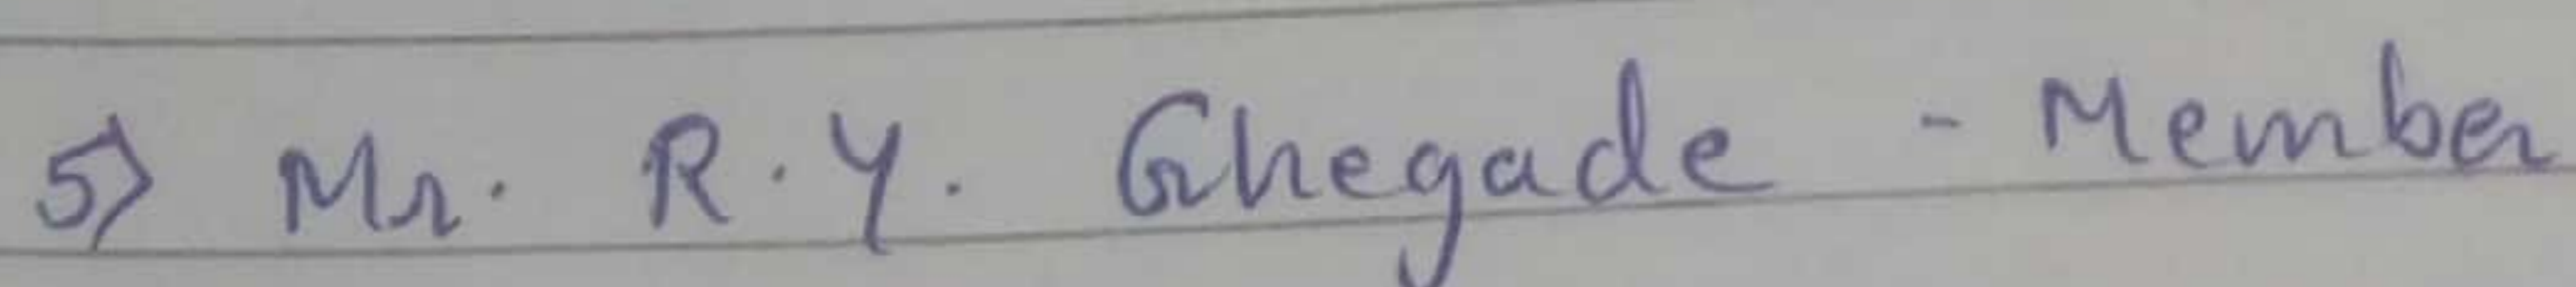 5) Mr. R.Y. Ghegade - Member